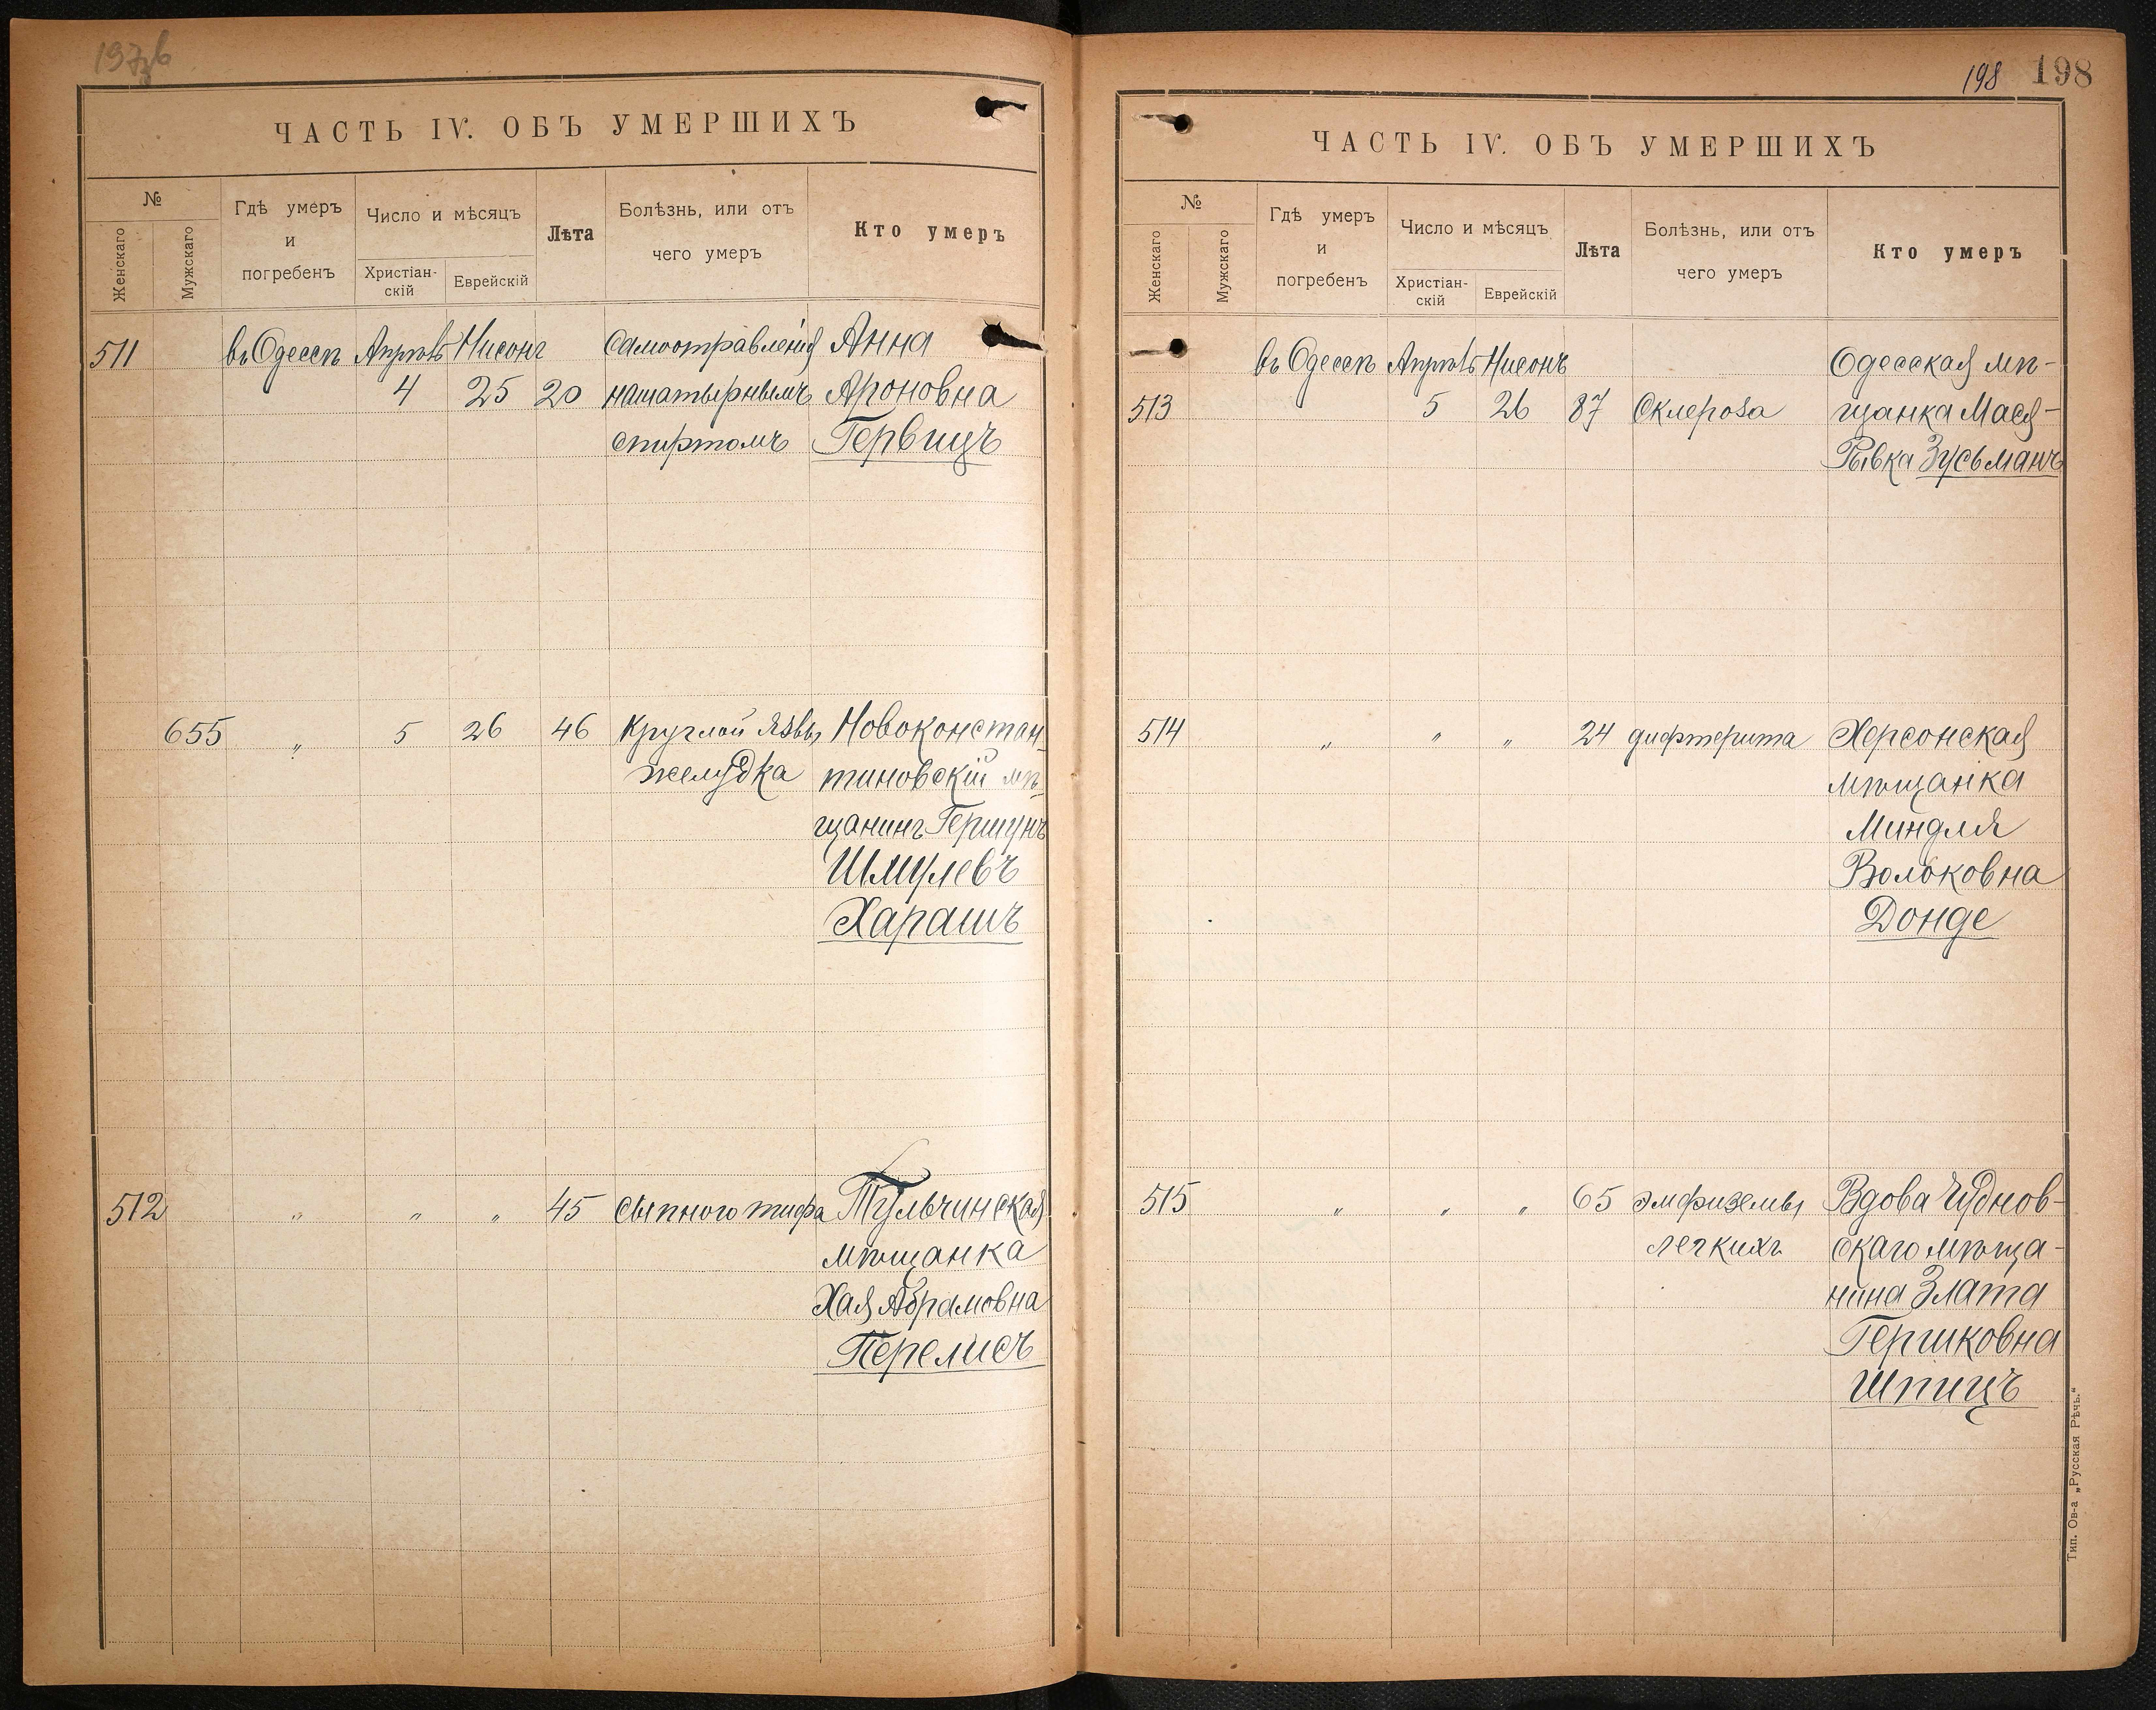 198 198
ЧАСТЬ IV. ОБЪ УМЕРШИХЪ
№
Женскаго
Мужскаго
Гдѣ умеръ
и
погребенъ
Число и мѣсяцъ
Христіан-
скій
Еврейскій
Лѣта
Болѣзнь, или отъ
чего умеръ
Кто умеръ
511 въ Одессѣ Апрѣль Нисонъ Самоотравленія Анна
4 25 20 нашатырнымъ Ароновна
спиртомъ Гервицъ
655 „ 5 26 46 Круглой язвы Новоконстан-
желудка тиновскій мѣ-
щанинъ Гершунъ
Шмулевъ
Харашъ
512 „ „ „ 45 Сыпного тифа Тульчинская
мѣщанка
Хая Абрамовна
Перелисъ
ЧАСТЬ IV. ОБЪ УМЕРШИХЪ
№
Женскаго
Мужскаго
Гдѣ умеръ
и
погребенъ
Число и мѣсяцъ
Христіан-
скій
Еврейскій
Лѣта
Болѣзнь, или отъ
чего умеръ
Кто умеръ
въ Одессѣ Апрѣль Нисонъ Одесская мѣ-
513 5 26 87 Склероза щанка Мася-
Рывка Зусьманъ
514 „ „ „ 24 дифтерита Херсонская
мѣщанка
Миндля
Вольковна
Донде
515 „ „ „ 65 эмфиземы Вдова Чуднов-
легкихъ скаго мѣща-
нина Злата
Гершковна
Шпицъ
Тип. Ов-а „Русская Рѣчь."